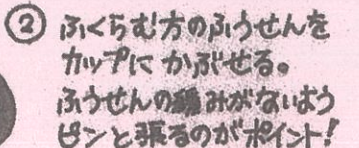 ② ふくらむ方のふうせんを
カップに かぶせる。
ふうせんの みがないよう
ピンと張るのがポイント!